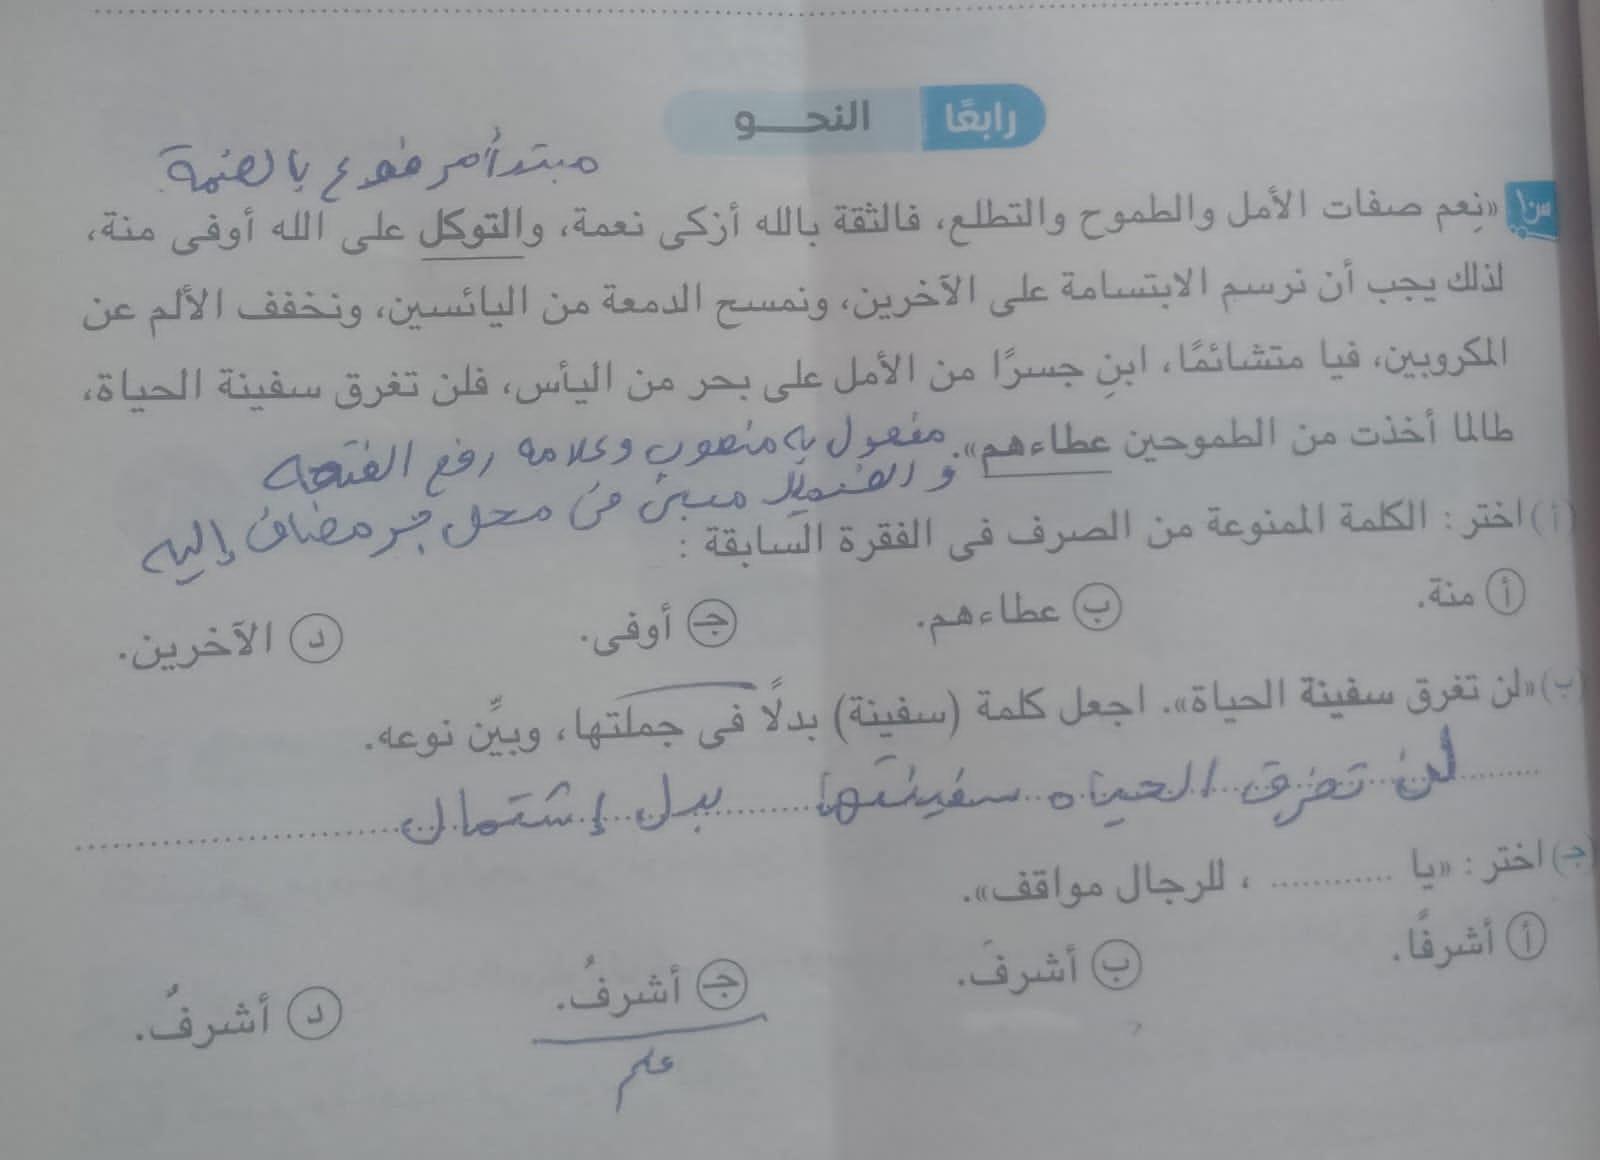 رابعًا النحـــو
مبتدأ مرفوع بالضمة
س١ «نِعم صفات الأمل والطموح والتطلع، فالثقة بالله أزكى نعمة، والتوكل على الله أوفى منة،
لذلك يجب أن نرسم الابتسامة على الآخرين، ونمسح الدمعة من اليائسين، ونخفف الألم عن
المكروبين، فيا متشائمًا، ابنِ جسرًا من الأمل على بحر من اليأس، فلن تغرق سفينة الحياة،
طالما أخذت من الطموحين عطاءهم».
مفعول به منصوب وعلامه رفع الفتحه
و الضمير مبنى فى محل جر مضاف إليه
(أ) اختر : الكلمة الممنوعة من الصرف فى الفقرة السابقة :
أ منة. ب عطاءهم. جـ أوفى. د الآخرين.
(ب) «لن تغرق سفينة الحياة». اجعل كلمة (سفينة) بدلًا فى جملتها، وبيِّن نوعه.
لن تغرق الحياه سفينتها بدل إشتمال
(جـ) اختر : «يا ............ ، للرجال مواقف».
أ أشرفًا. ب أشرفَ. جـ أشرفُ. د أشرفٌ.
علم